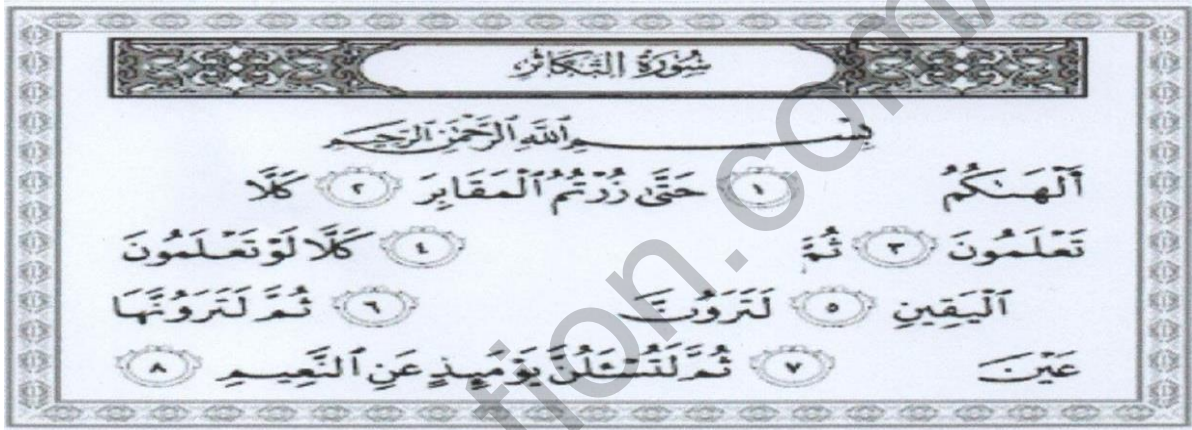 سُورَةُ التَّكَاثُرِ
بِسْمِ اللَّهِ الرَّحْمَٰنِ الرَّحِيمِ
أَلْهَىٰكُمُ ١ حَتَّىٰ زُرْتُمُ ٱلْمَقَابِرَ ٢ كَلَّا
تَعْلَمُونَ ٣ ثُمَّ ٤ كَلَّا لَوْ تَعْلَمُونَ
الْيَقِينِ ٥ لَتَرَوُنَّ ٦ ثُمَّ لَتَرَوُنَّهَا
عَيْنَ ٧ ثُمَّ لَتُسْـَٔلُنَّ يَوْمَئِذٍ عَنِ ٱلنَّعِيمِ ٨
tion.com/